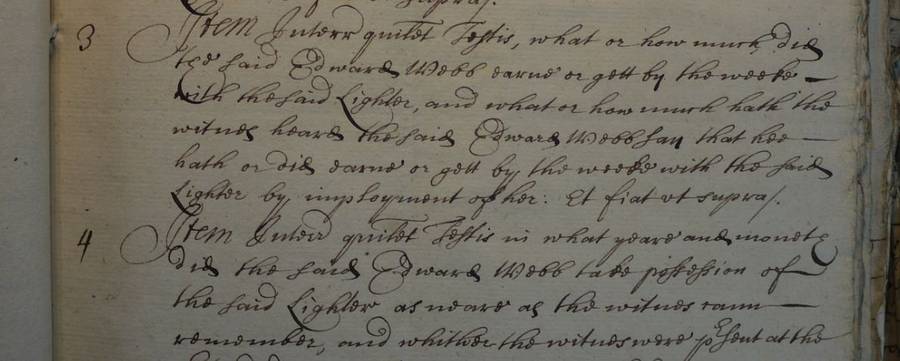 supra/.
3 Item Interr quilet Testis, what or how much did
the said Edward Webb earne or gett by the weeke
with the said Lighter, and what or how much hath the
witnes heard the said Edward Webb say that hee
hath or did earne or gett by the weeke with the said
Lighter by imployment of her: Et fiat vt supra/.
4 Item Interr quilet Testis in what yeare and moneth
did the said Edward Webb take possession of
the said Lighter as neare as the witnes cann
remember, and whither the witnes were psent at the